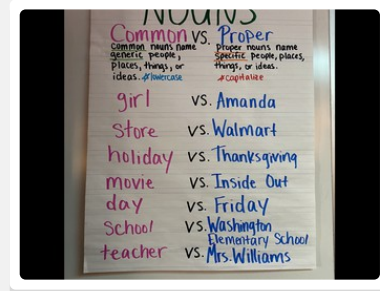 NOUNS
Common vs. Proper
Common nouns name generic people, places, things, or ideas. #lowercase
Proper nouns name specific people, places, things, or ideas. #capitalize
girl vs. Amanda
Store vs. Walmart
holiday vs. Thanksgiving
movie vs. Inside Out
day vs. Friday
School vs. Washington Elementary School
teacher vs. Mrs. Williams